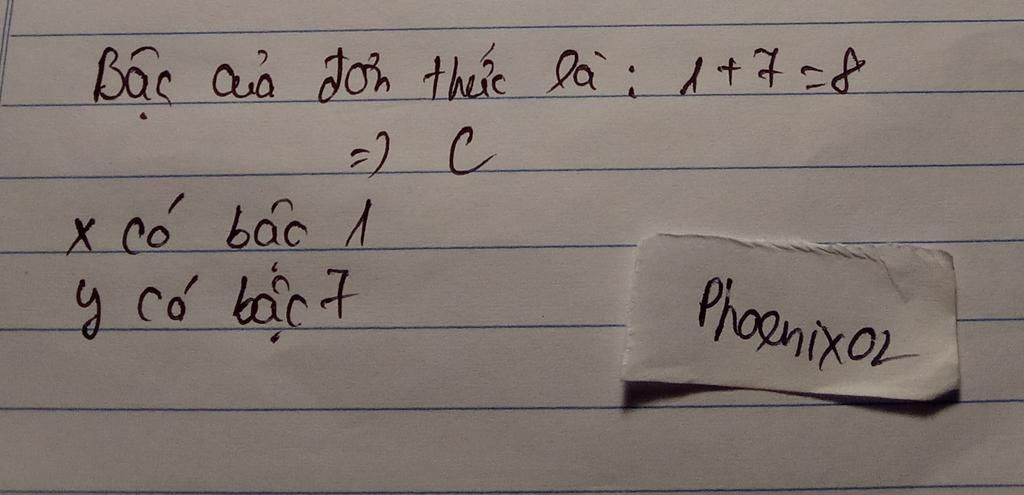 Bậc của đơn thức là : 1 + 7 = 8
=> C
x có bậc 1
y có bậc 7
Phoenix02